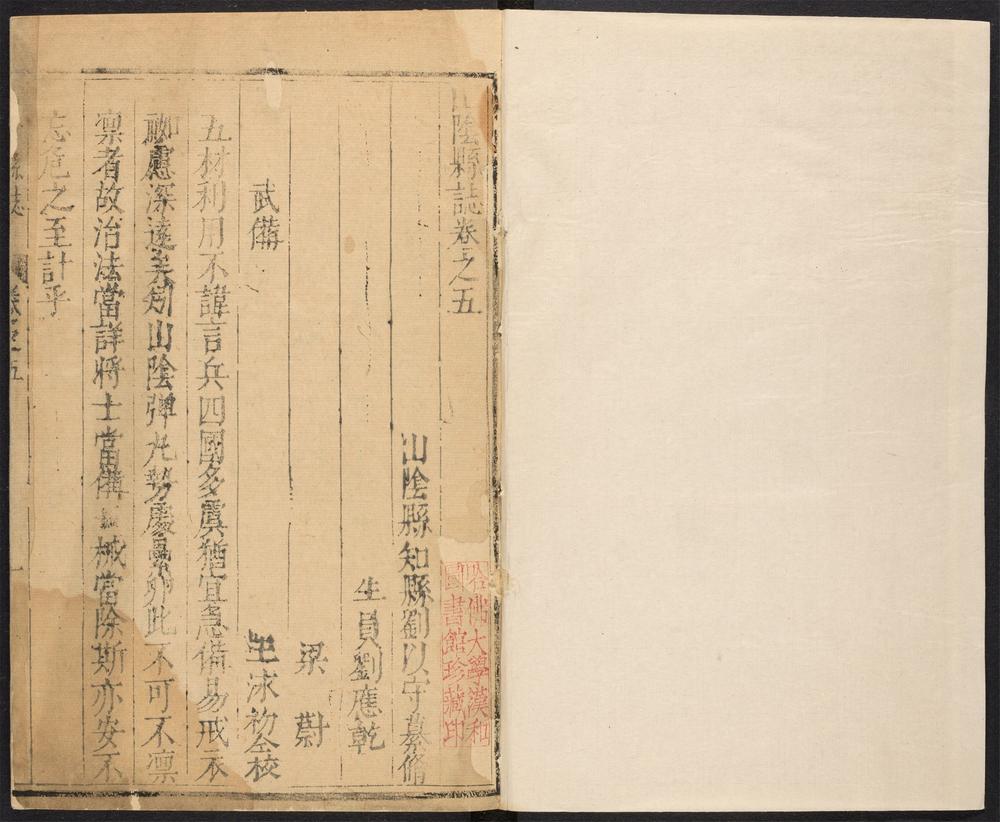 山陰縣誌卷之五
山陰縣知縣劉以守纂脩
生員劉應乾
梁蔚
王家初仝校
武備
五材利用不諱言兵四國多虞猶宜急備易戒衣
袽慮深遠矣矧山陰彈丸勢處纍卵此不可不凛
凛者故治法當詳將士當備械當除斯亦安不
忘危之至計乎
縣誌 卷之五 一
哈佛大學漢和
圖書館珍藏印